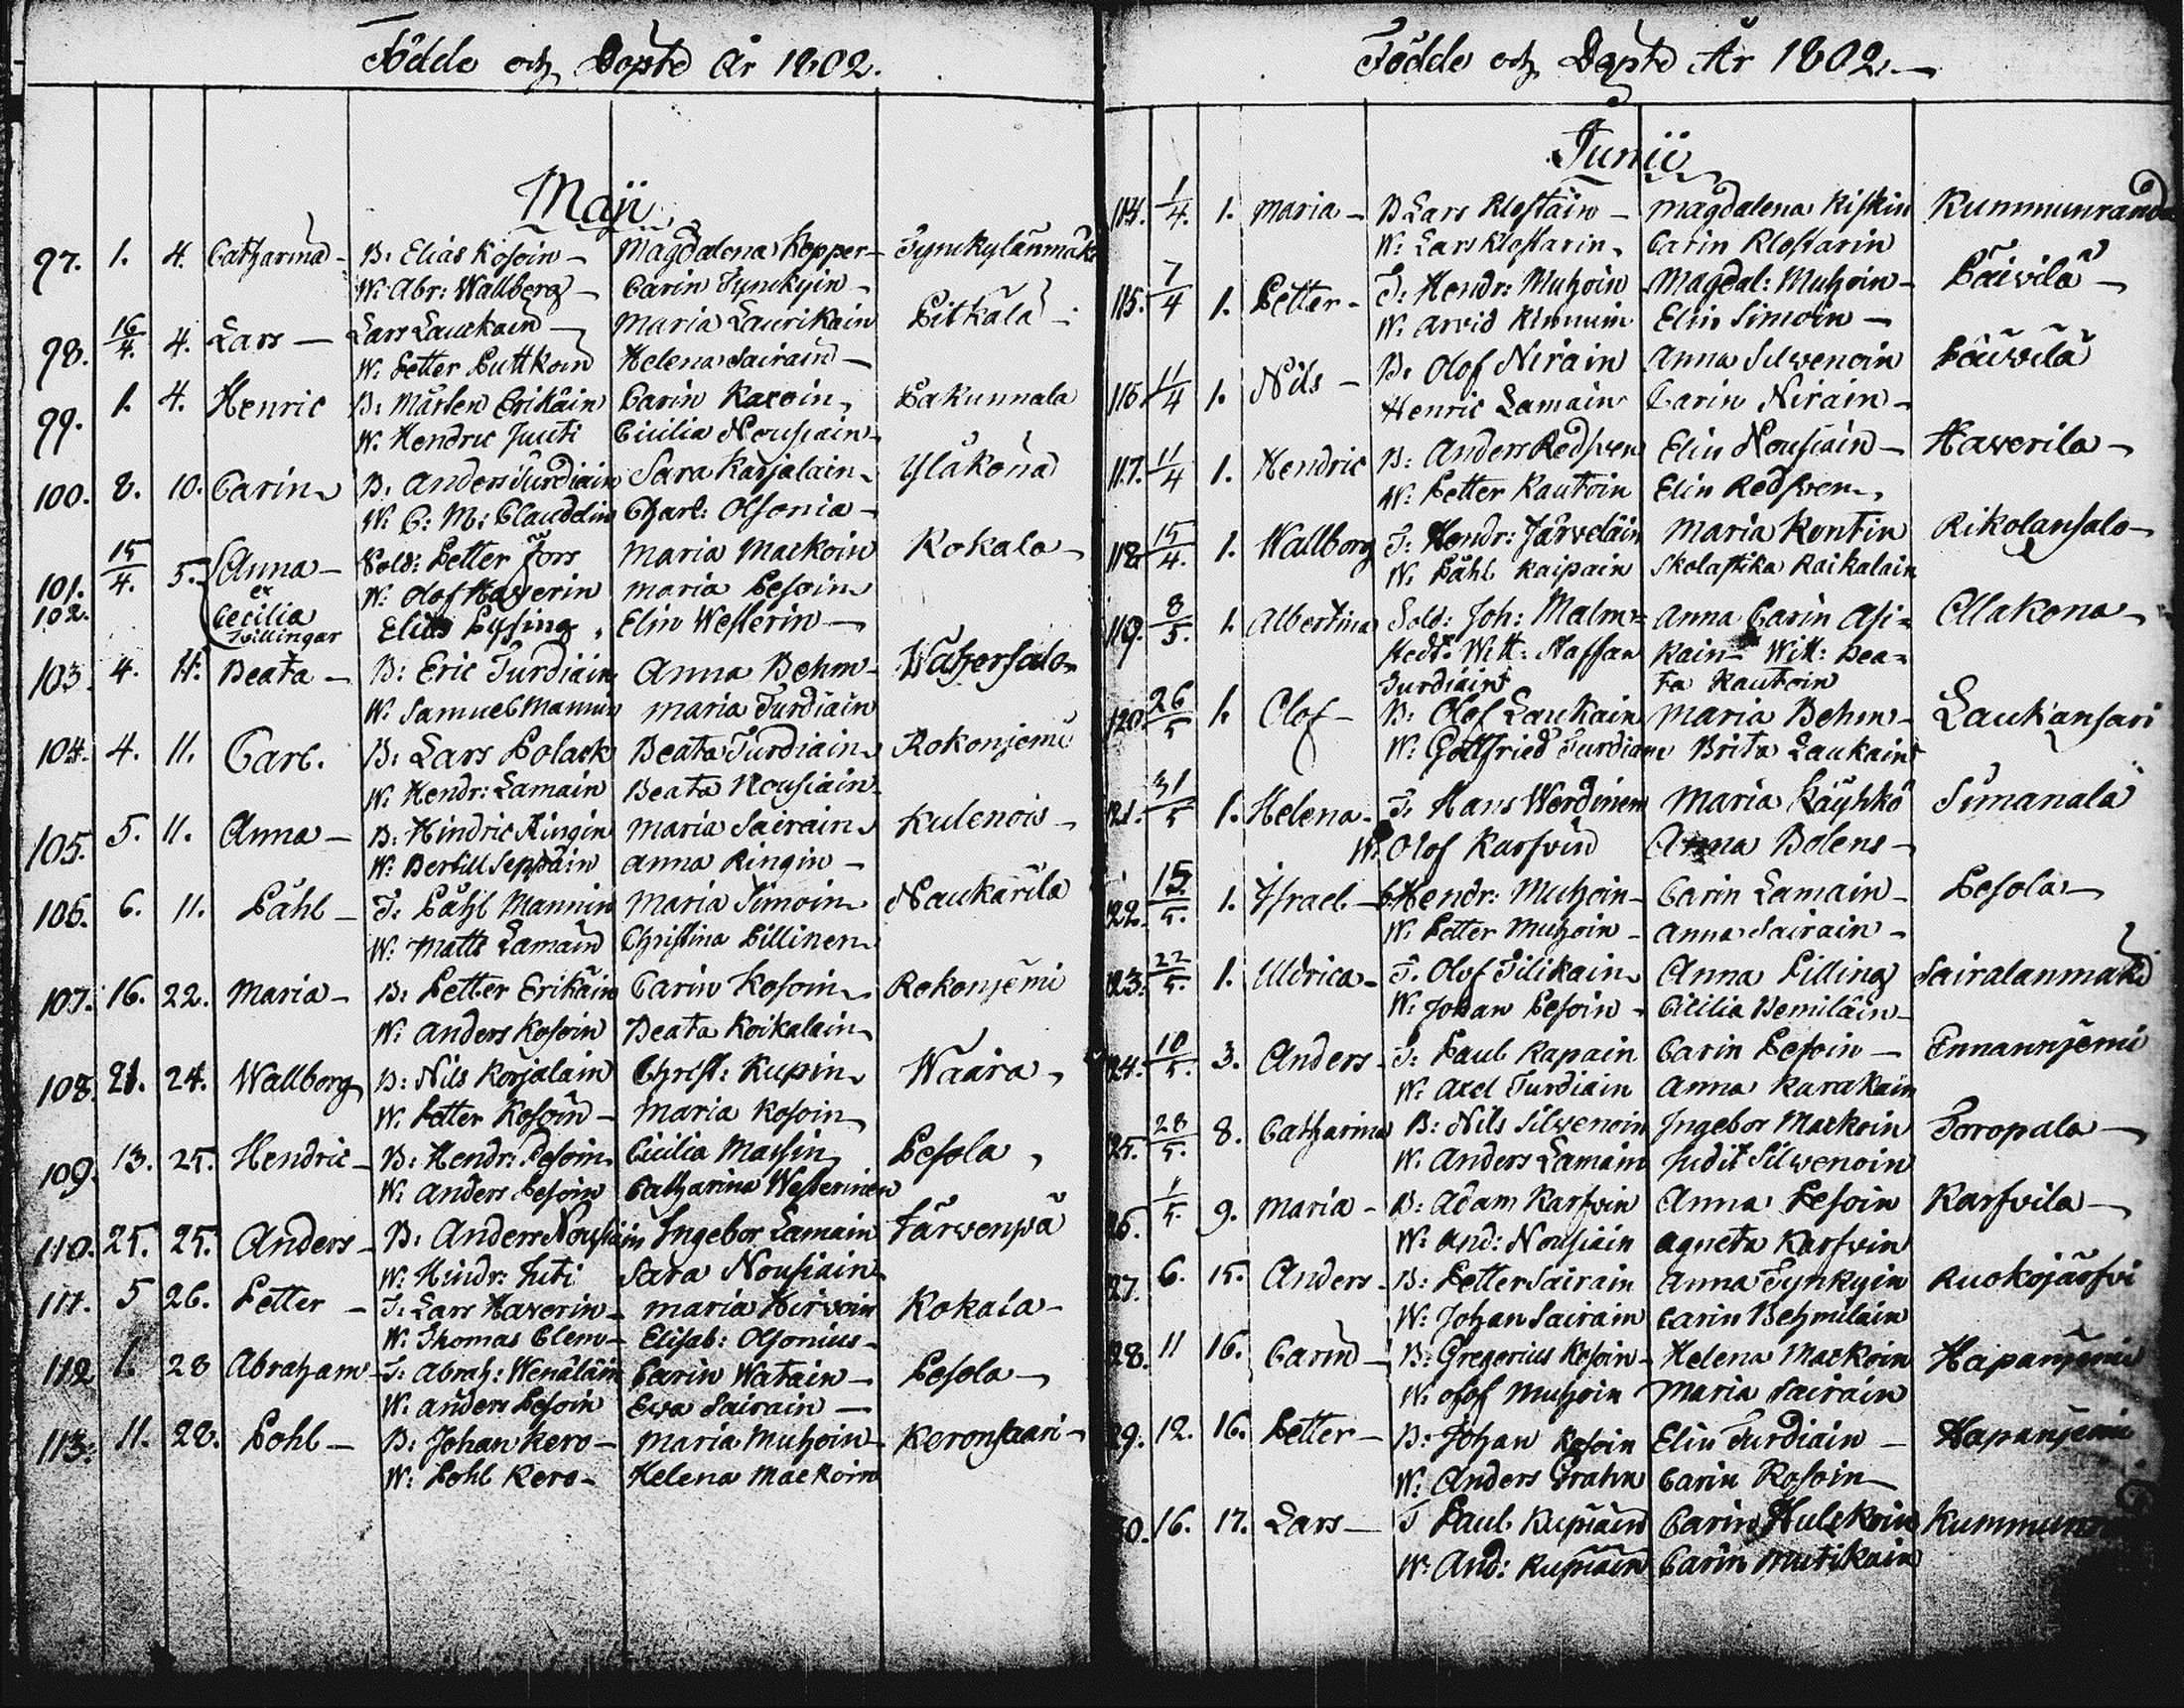 Födde och Döpte År 1802.
Maji
97. 1. 4. Catharina - B: Elias Kosoin - Magdalena Kopper - Tynckylänmäki
W: Abr: Wallberg - Carin Tynckyin -
98. 16/4. 4. Lars - Lars Laukain - Maria Laurikain Pitkälä -
W: Petter Puttkoin Helena Sairain -
99. 1. 4. Henric B: Mårten Erikäin Carin Karoin Pakunnala
W. Hendric Juuti Cicilia Nousiain -
100. 8. 10. Carin B: Anders Turdiain Sara Karjalain Yläkönä
W: C: M: Clauddelin Charl: Olsonia -
101. 15/4. 5. Anna - Sold: Petter Fors Maria Mackoin Kokala -
et W. Olof Haverin Maria Pesoin
102. Cecilia Elias Pysing, Elin Westerin -
Tvillingar
103. 4. 11. Beata - B: Eric Turdiain Anna Behm - Watzersalo
W: Samuel Mannin Maria Turdiain
104. 4. 11. Carl. B: Lars Polack Beata Turdiain Rokonjemi
W: Hendr: Lamain Beata Nousiain
105. 5. 11. Anna - B: Hindric Ringin Maria Sairain Kulenois -
W: Bertill Seppäin Anna Ringin -
106. 6. 11. Påhl - T: Påhl Mannin Maria Simoin Naukarila
W: Matts Lamain Christina Pillinen
107. 16. 22. Maria - B: Petter Erikäin Carin Kosoin Rokonjemi
W: Anders Kosoin Beata Koikalain
108. 21. 24. Wallborg B: Nils Korjalain Christ: Kupin Waara
W. Petter Kosoin - Maria Kosoin
109. 13. 25. Hendric - B: Hendr: Pesoin Cicilia Massin Pesola
W: Anders Pesoin Catharina Westerinen
110. 25. 25. Anders - B: Anders Nousiain Ingebor Lamain Järwenpä
W: Hindr: Juti Sara Nousiain
111. 5 26. Petter - T: Lars Haverin - Maria Hirvoin Kokala -
W: Thomas Clem - Elisab: Olsonius -
112 1. 28 Abraham - T: Abrah: Wenäläin Carin Watain - Pesola -
W: Anders Pesoin Ewa Sairain -
113: 11. 28. Pohl - B: Johan Kero - Maria Muhoin - Keronsaari -
W: Pohl Kero - Helena Mackoin
Födde och Döpte År 1802. -
Junii
114. 1/4. 1. Maria - B Lars Klostäin - Magdalena Kiskin Kummunranda
W: Lars Klostarin. Carin Klostarin
115. 7/4 1. Petter - T: Hendr: Muhoin Magdal: Muhoin - Päivilä -
W: Arvid Kinnuin Elin Simoin -
116 11/4 1. Nils - B: Olof Niräin Anna Silwenoin Päivilä
Henric Lamain Carin Niräin -
117. 11/4 1. Hendric B: Anders Redsven Elin Nousiain - Haverila -
W: Petter Kautoin Elin Redsven
118 15/4. 1. Wallborg T: Hendr: Järveläin Maria Kontin Rikolansalo -
W: Påhl Kaipain Skolastika Raikalain
119. 8/5. 1. Albertina Sold: Joh: Malm - Anna Carin Asi=
Ollakona -
Kedt: Witt: Staffan kain - Witt: Bea=
Turdiain ta Kautoin
120. 26/5 1. Olof - B: Olof Laukain Maria Behm - Laukansari
W: Gottfried Turdiain Brita Laukain
121. 31/5 1. Helena - T: Hans Werdinen Maria Käyhkö Simanala
W: Olof Karfvin Anna Bolens -
122. 15/5. 1. Israel - Hendr: Muhoin - Carin Lamain - Pesola -
W: Petter Muhoin - Anna Sairain -
123. 22/5. 1. Uldrica - T: Olof Tilikain Anna Pilling Sairalanmäki
W: Johan Pesoin - Cicilia Bemiläin -
124. 10/5. 3. Anders - T: Paul Kapain Carin Pesoin - Ennannjemi
W: Axel Turdiain Anna Karakain
125. 28/5. 8. Catharina B: Nils Silwenoin Ingebor Mackoin Toropala -
W: Anders Lamain Judit Silwenoin
26. 1/5. 9. Maria - B: Adam Karfvin Anna Pesoin Karfvila -
W: And: Nousiain Agneta Karfvin
27. 6. 15. Anders - B: Petter Sairain Anna Tynkyin Ruokojärfvi
W: Johan Sairain Carin Behmiläin
28. 11 16. Carin - B: Gregorius Kosoin - Helena Mackoin Hapanjemi
W: Olof Muhoin Maria Sairain
29. 12. 16. Petter - B: Johan Kosoin Elin Turdiain - Hapanjemi
W: Anders Grahn Carin Kosoin -
30. 16. 17. Lars - T Paul Kupiain Carin Hulckoin
W: And: Kupiain Carin Mutikain